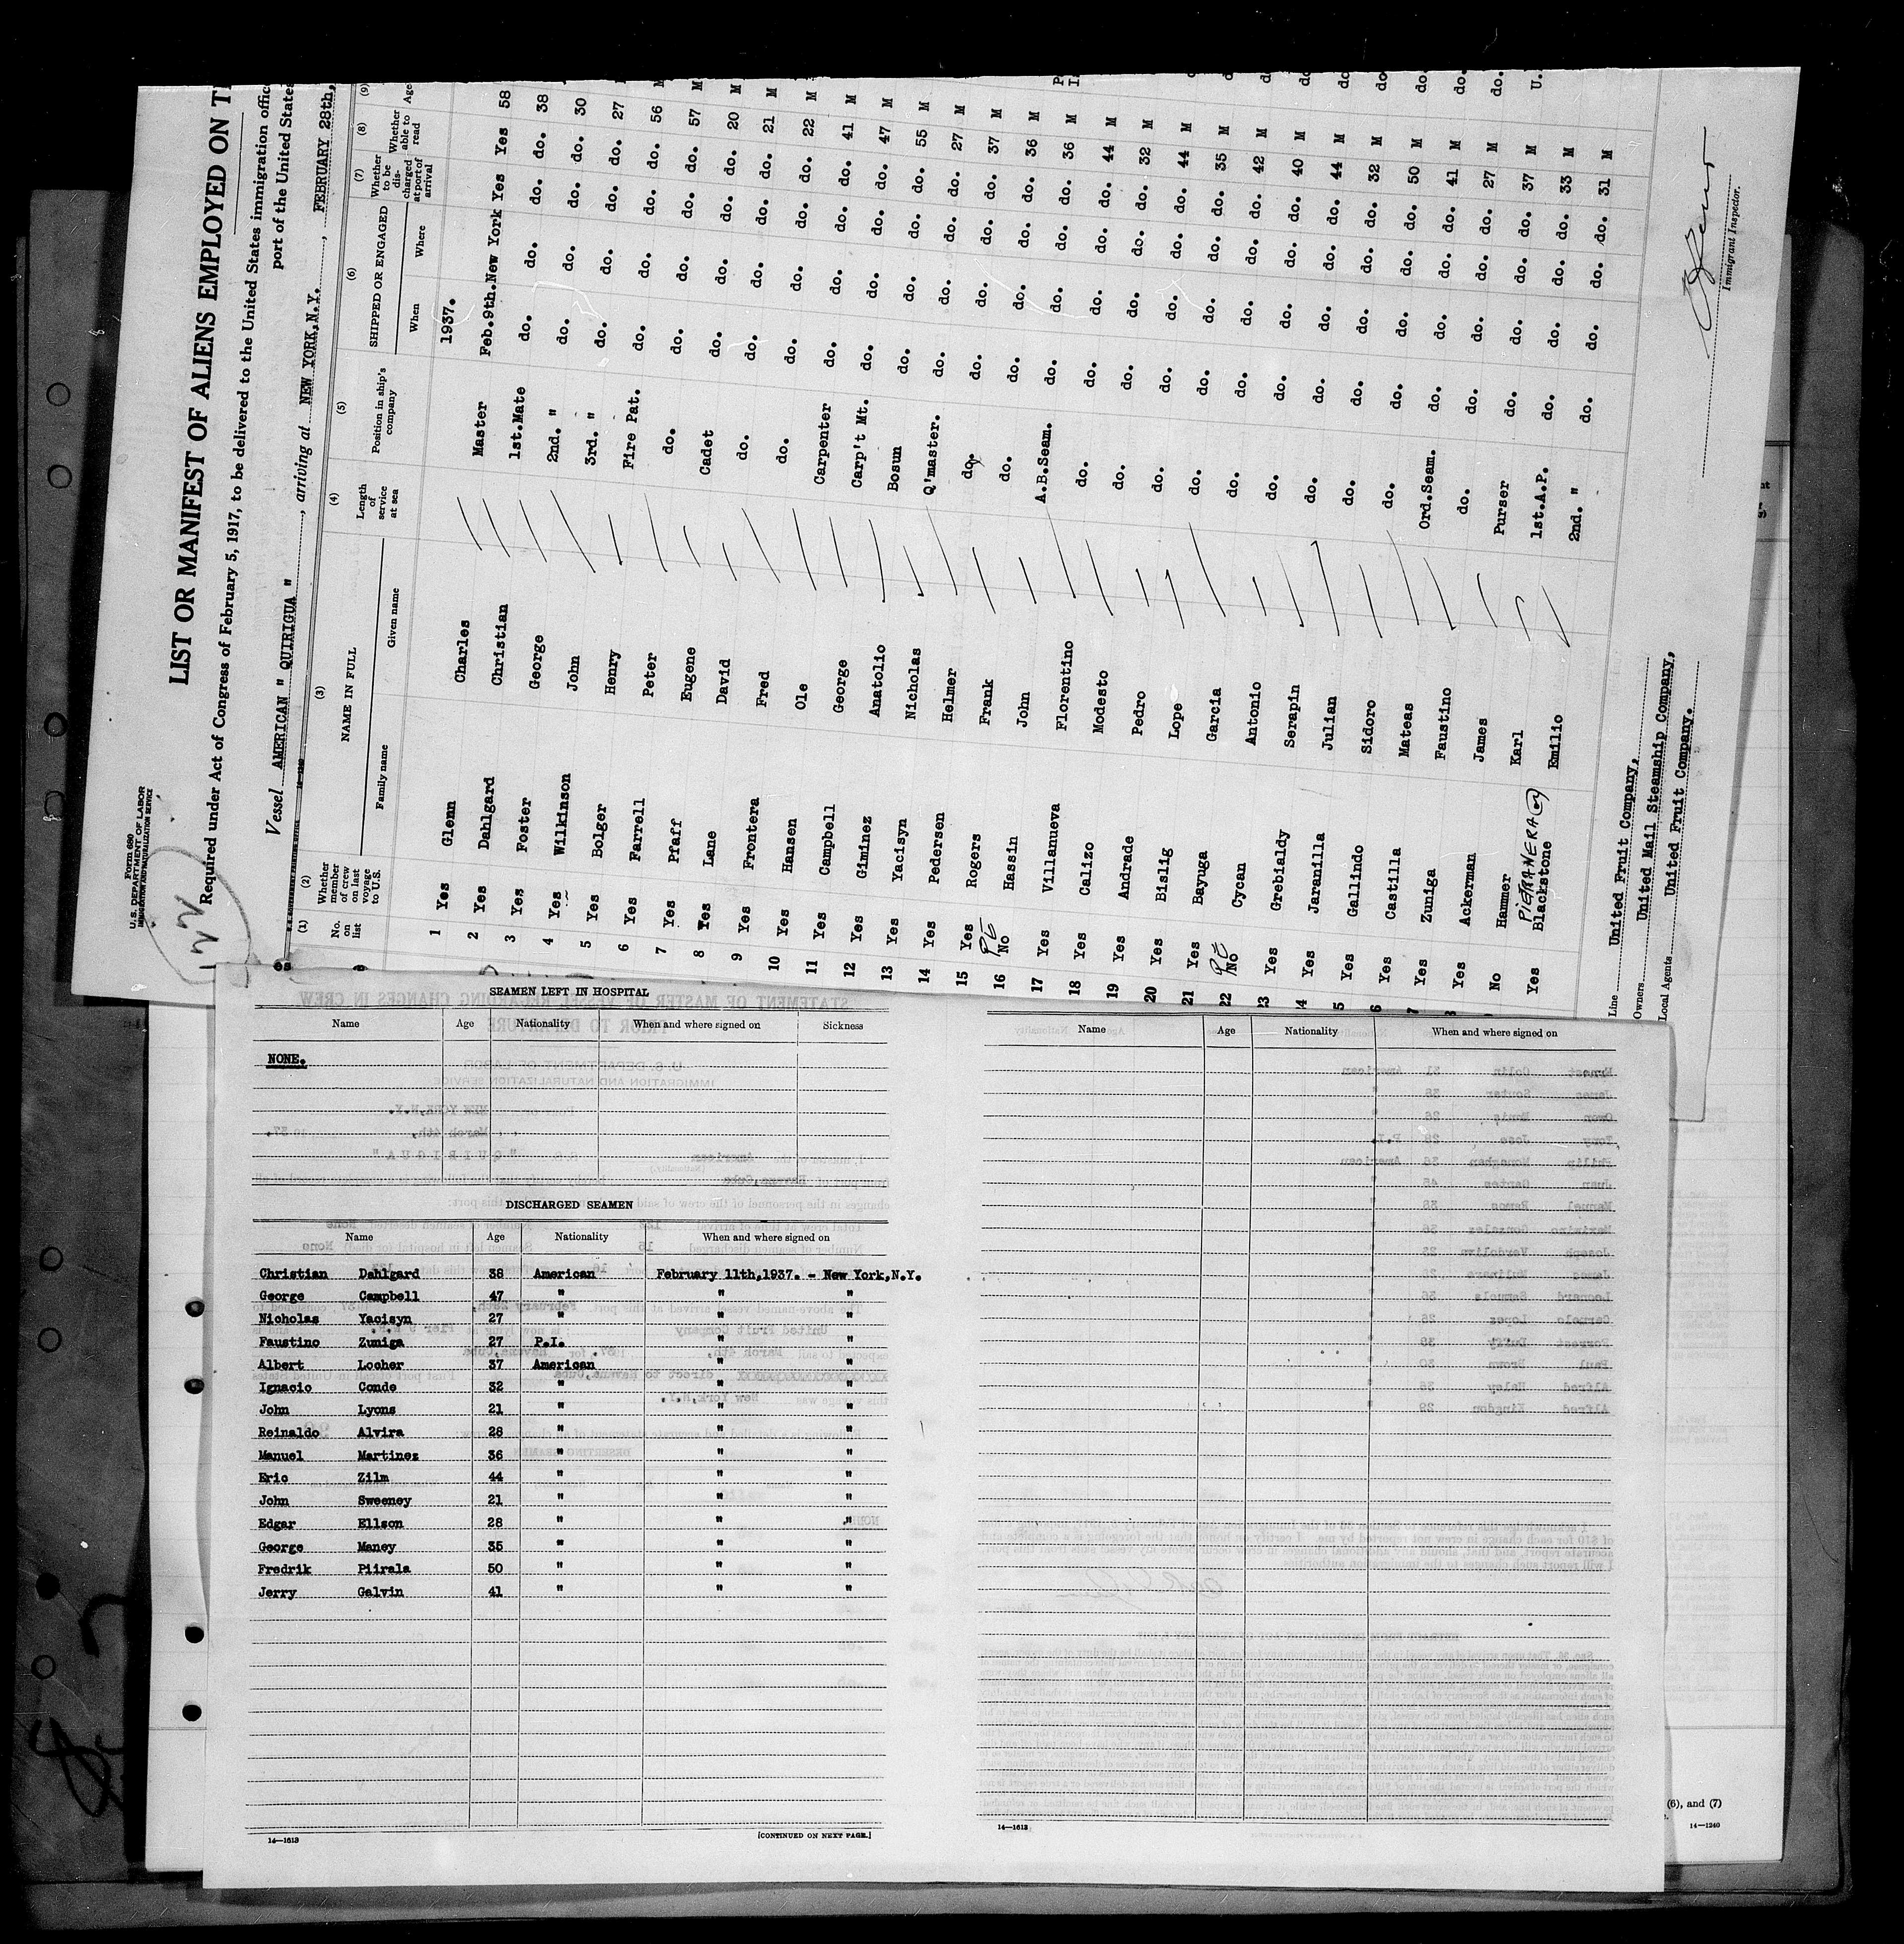 Form 680
U.S. DEPARTMENT OF LABOR
IMMIGRATION AND NATURALIZATION SERVICE
LIST OR MANIFEST OF ALIENS EMPLOYED ON
Required under Act of Congress of February 5, 1917, to be delivered to the United States immigration
port of the United States
Vessel AMERICAN " QUIRIGUA ", arriving at NEW YORK,N.Y., FEBRUARY 28th,
(1) (2) (3) (4) (5) (6) (7) (8) (9)
No. on list Whether member of crew on last voyage to U.S. NAME IN FULL Length of service at sea Position in ship's company SHIPPED OR ENGAGED Whether to be discharged at port of arrival Whether able to read Age
Family name Given name When Where
1937.
1 Yes Glenn Charles Master Feb.9th. New York Yes Yes 58 M
2 Yes Dahlgard Christian 1st.Mate do. do. do. do. 38 M
3 Yes Foster George 2nd. " do. do. do. do. 30 M
4 Yes Wilkinson John 3rd. " do. do. do. do. 27 M
5 Yes Bolger Henry Fire Pat. do. do. do. do. 56 M
6 Yes Farrell Peter do. do. do. do. do. 57 M
7 Yes Pfaff Eugene Cadet do. do. do. do. 20 M
8 Yes Lane David do. do. do. do. do. 21 M
9 Yes Frontera Fred do. do. do. do. do. 22 M
10 Yes Hansen Ole Carpenter do. do. do. do. 41 M
11 Yes Campbell George Carp't Mt. do. do. do. do. 47 M
12 Yes Giminez Anatolio Bosun do. do. do. do. 55 M
13 Yes Yacisyn Nicholas Q'master. do. do. do. do. 27 M
14 Yes Pedersen Helmer do. do. do. do. do. 37 M
15 Yes Rogers Frank do. do. do. do. do. 36 M
16 No Hassin John A.B.Seam. do. do. do. do. 36 M
17 Yes Villanueva Florentino do. do. do. do. do. 44 M
18 Yes Calizo Modesto do. do. do. do. do. 32 M
19 Yes Andrade Pedro do. do. do. do. do. 44 M
20 Yes Bislig Lope do. do. do. do. do. 35 M
21 Yes Bayuga Garcia do. do. do. do. do. 42 M
22 No Cycan Antonio do. do. do. do. do. 40 M
23 Yes Grebialdy Serapin do. do. do. do. do. 44 M
4 Yes Jaranilla Julian do. do. do. do. do. 32 M
5 Yes Gallindo Sidoro do. do. do. do. do. 50 M
6 Yes Castilla Mateas Ord.Seam. do. do. do. do. 41 M
7 Yes Zuniga Faustino do. do. do. do. do. 27 M
Yes Ackerman James Purser do. do. do. do. 37 M
No Hammer Karl 1st.A.P. do. do. do. do. 33 M
PIETRANERA
Yes Blackstone Emilio 2nd. " do. do. do. do. 31 M
Line United Fruit Company,
Owners United Mail Steamship Company,
Local Agents United Fruit Company.
Immigrant Inspector.
SEAMEN LEFT IN HOSPITAL
Name Age Nationality When and where signed on Sickness
NONE.
DISCHARGED SEAMEN
Name Age Nationality When and where signed on
Christian Dahlgard 38 American February 11th,1937. - New York,N.Y.
George Campbell 47 " " "
Nicholas Yacisyn 27 " " "
Faustino Zuniga 27 P.I. " "
Albert Locher 37 American " "
Ignacio Conde 32 " " "
John Lyons 21 " " "
Reinaldo Alvira 28 " " "
Manuel Martinez 36 " " "
Eric Zilm 44 " " "
John Sweeney 21 " " "
Edgar Ellson 28 " " "
George Maney 35 " " "
Fredrik Piirala 50 " " "
Jerry Galvin 41 " " "
14—1613 [CONTINUED ON NEXT PAGE.]
Name Age Nationality When and where signed on
14—1613
(6), and (7)
14—1240